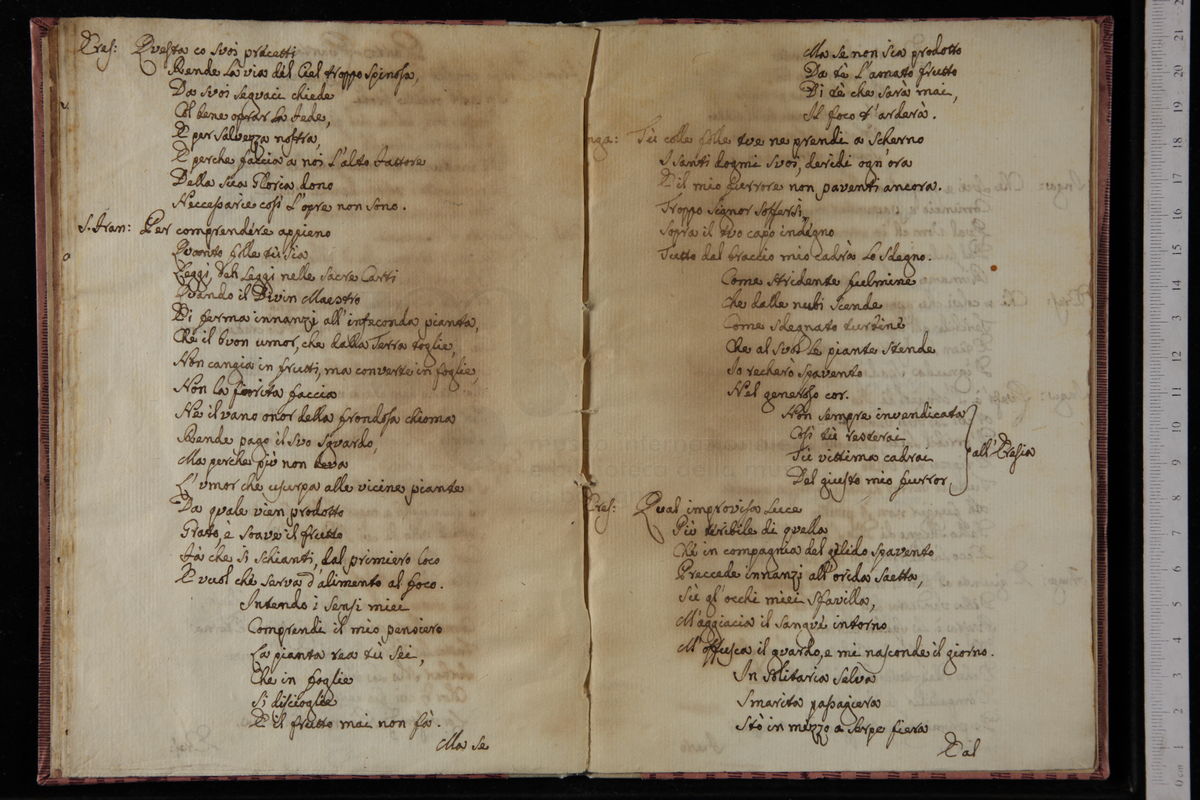 Eres: Questa co suoi precetti
Rende la via del Ciel troppo spinosa,
Da suoi seguaci chiede
Col bene oprar la fede,
E per salvezza nostra,
E perche faccia a noi l'alto fattore
Della sua Gloria dono
Neccessarie così l'opre non sono.
S. Fran: Per comprendere appieno
Quanto folle tù sia
Leggi, deh leggi nelle sacre Carti
Quando il Divin Maestro
Di ferma innanzi all'infeconda pianta,
Che il buon umor, che dalla Terra toglie,
Non cangia in frutti, ma converte in foglie,
Non la fiorita faccia
Ne il vano onor della frondosa chioma
Rende pago il suo sguardo,
Ma perche più non beva
L'umor che usurpa alle vicine piante
Da quale vien prodotto
Grato, e soave il frutto
Fà che si schianti, dal primiero loco
E vuol che serva d'alimento al foco.
Intendo i sensi miei
Comprendi il mio pensiero
La pianta rea tù sei,
Che in foglie
Si discioglie
E il frutto mai non fà.
Ma se
Ma se non sia prodotto
Da tè l'amato frutto
Di tè che sarà mai,
Il foco t'arderà.
nga: Tù colle folle tue ne prendi a scherno
I santi dogmi suoi, deridi ogn'ora
E il mio furrore non paventi ancora.
Troppo signor soffersi,
Sopra il tuo capo indegno
Tutto del braccio mio cadrà lo sdegno.
Come stridente fulmine
Che dalle nubi scende
Come sdegnato turbine
Che al suol le piante stende
Io recherò spavento
Nel generoso cor.
Non sempre invendicata
Così tù resterai
Tù vittima cadrai
Del giusto mio furror,
all'Eresia
Eres: Qual improvisa luce
Più teribile di quella
Ch'in compagnia del gelido spavento
Preccede innanzi all'orida saetta,
Sù gl'occhi miei sfavilla,
M'aggiacia il sangue intorno
M'offusca il guardo, e mi nasconde il giorno.
In solitaria selva
Smarita passagiera
Stò in mezzo a serpe fiera
Tal